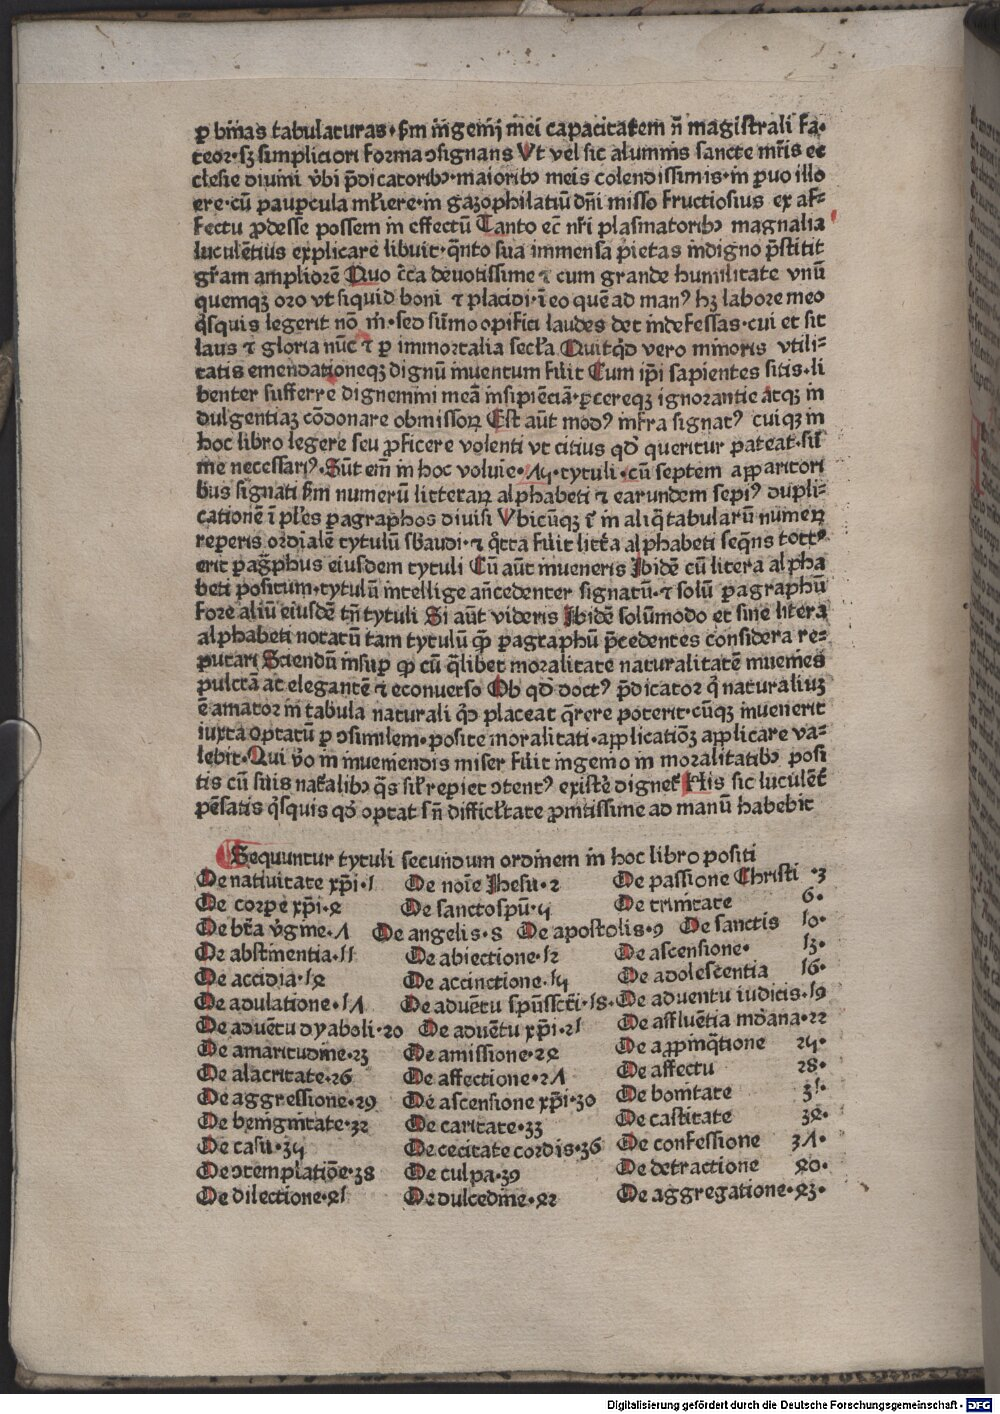 ꝑ bīnas tabulaturas· s̄m īngenij mei capacitatem n̄ magistrali fa⸗
teor·sꝫ simpliciori forma ↄsignans Vt vel sic alumnis sancte mr̄is ec
clesie diuini v̇bi p̄dicatoribꝫ·maioribꝫ meis colendissimis·in ꝑuo illo
ere·cū paupercula ml̄iere·in gazophilatiū dn̄i misso fructiosius ex af⸗
fectu ꝓdesse possem in effectū Tanto ec̄ nr̄i plasmatoribꝫ magnalia
luculētius explicare libuit·q̄nto sua immensa pietas indigno p̄stitit
gr̄am ampliorē Quo c̄ca deuotissime ⁊ cum grande humilitate vnū
quemqꝫ oro vt siquid boni ⁊ placidi·ī eo quē ad manꝰ hꝫ labore meo
q̇squis legerit nō m̄·sed sūmo opifici laudes det indefessas·cui et sit
laus ⁊ gloria nūc ⁊ ꝑ immortalia secl̄a Quitq̇d vero minoris vtili⸗
tatis emendationeqꝫ dignū inuentum fūit Cum ip̄i sapientes sitis·li
benter sufferre dignemini meā insipiēciā·ꝑcereqꝫ ignorantie atqꝫ in
dulgentiaꝫ cōdonare obmissoꝝ Est aūt modꝰ infra signatꝰ cuiqꝫ in
hoc libro legere seu ꝓficere volenti vt citius qd̄ queritur pateat·sū
me necessariꝰ·Sūt em̄ in hoc volūie·75·tytuli·cū septem apparitori
bus signati s̄m numerū litteraꝝ alphabeti ⁊ earundem sepiꝰ dupli⸗
cationē ī pl̄es paragraphos diuisi Vbicūqꝫ ī in aliq̄ tabularū numeꝝ
reperis ordialē tytulū sb̄audi·⁊ q̄cta fūit litt̄a alphabeti seq̄ns tottꝰ
erit paḡphus eiusdem tytuli Cū aūt inueneris Ibidē cū litera alpha
beti positum·tytulū intellige an̄cedenter signatū·⁊ solū ꝑagraphū
fore aliū eiusdē tn̄ tytuli Si aūt videris Ibidē solūmodo et sine litera
alphabeti notatū tam tytulū qꝫ ꝑagraphū p̄cedentes considera re⸗
putari Sciendū insuꝑ qꝫ cū q̄libet moralitate naturalitatē inueīes
pulcrā at elegantē ⁊ econuerso Ob qd̄ doctꝰ p̄dicator q̄ naturaliuꝫ
ē amator in tabula naturali qd̄ placeat q̄rere poterit·cūqꝫ inuenerit
iuxta optatū ꝑ ↄsimilem·posite moralitati·applicatiōꝫ applicare va⸗
lebit·Qui v̇o in inueniendis miser fūit ingenio in moralitatibꝫ posi
tis cū suis nat̄alibꝫ q̄s sil̄ reꝑiet ↄtentꝰ existē dignet̄ His sic luculēt̄
pēsatis q̄squis qd̄ optat sn̄ difficl̄tate ꝓmtissime ad manū habebit
Sequuntur tytuli secundum ordinem in hoc libro positi
De natiuitate xp̄i·1 De noīe Jhesu·2 De passione Christi ·3
De corpe xp̄i·4 De sancto spū·5 De trinitate 6·
De bt̄a v̇gine·7 De angelis·8 De apostolis·9 De sanctis 10·
De abstinentia·11 De abiectione·12 De ascensione· 13·
De accidia·14 De accinctione·15 De adolescentia 16·
De adulatione·17 De aduētu spūssct̄i·18· De aduentu iudicis·19
De aduētu dyaboli·20 De aduētu xp̄i·21 De affluētia mūdana·22
De amaritudine·23 De amissione·24 De appinq̄tione 25·
De alacritate·26 De affectione·27 De affectu 28·
De aggressione·29 De ascensione xp̄i·30 De bonitate 31·
De benignitate·32 De caritate·33 De castitate 34·
De casu·35 De cecitate cordis·36 De confessione 37·
De ↄtemplatiōe·38 De culpa·39 De detractione 40·
De dilectione·41 De dulcedine·42 De aggregatione·43·
Digitalisierung gefördert durch die Deutsche Forschungsgemeinschaft - DFG